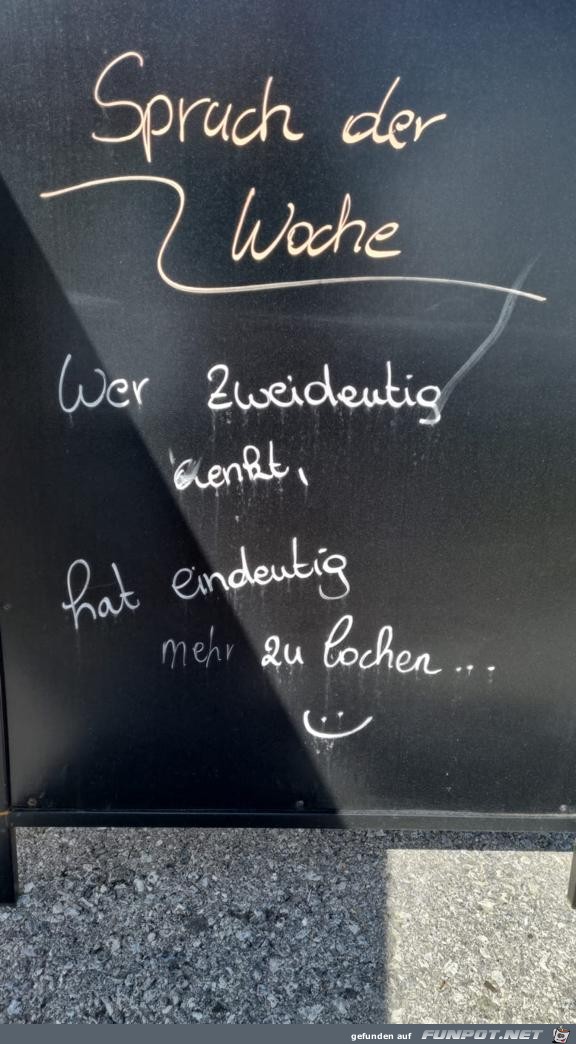 Spruch der
Woche
Wer zweideutig
denkt,
hat eindeutig
mehr zu lachen...
gefunden auf FUNPOT.NET